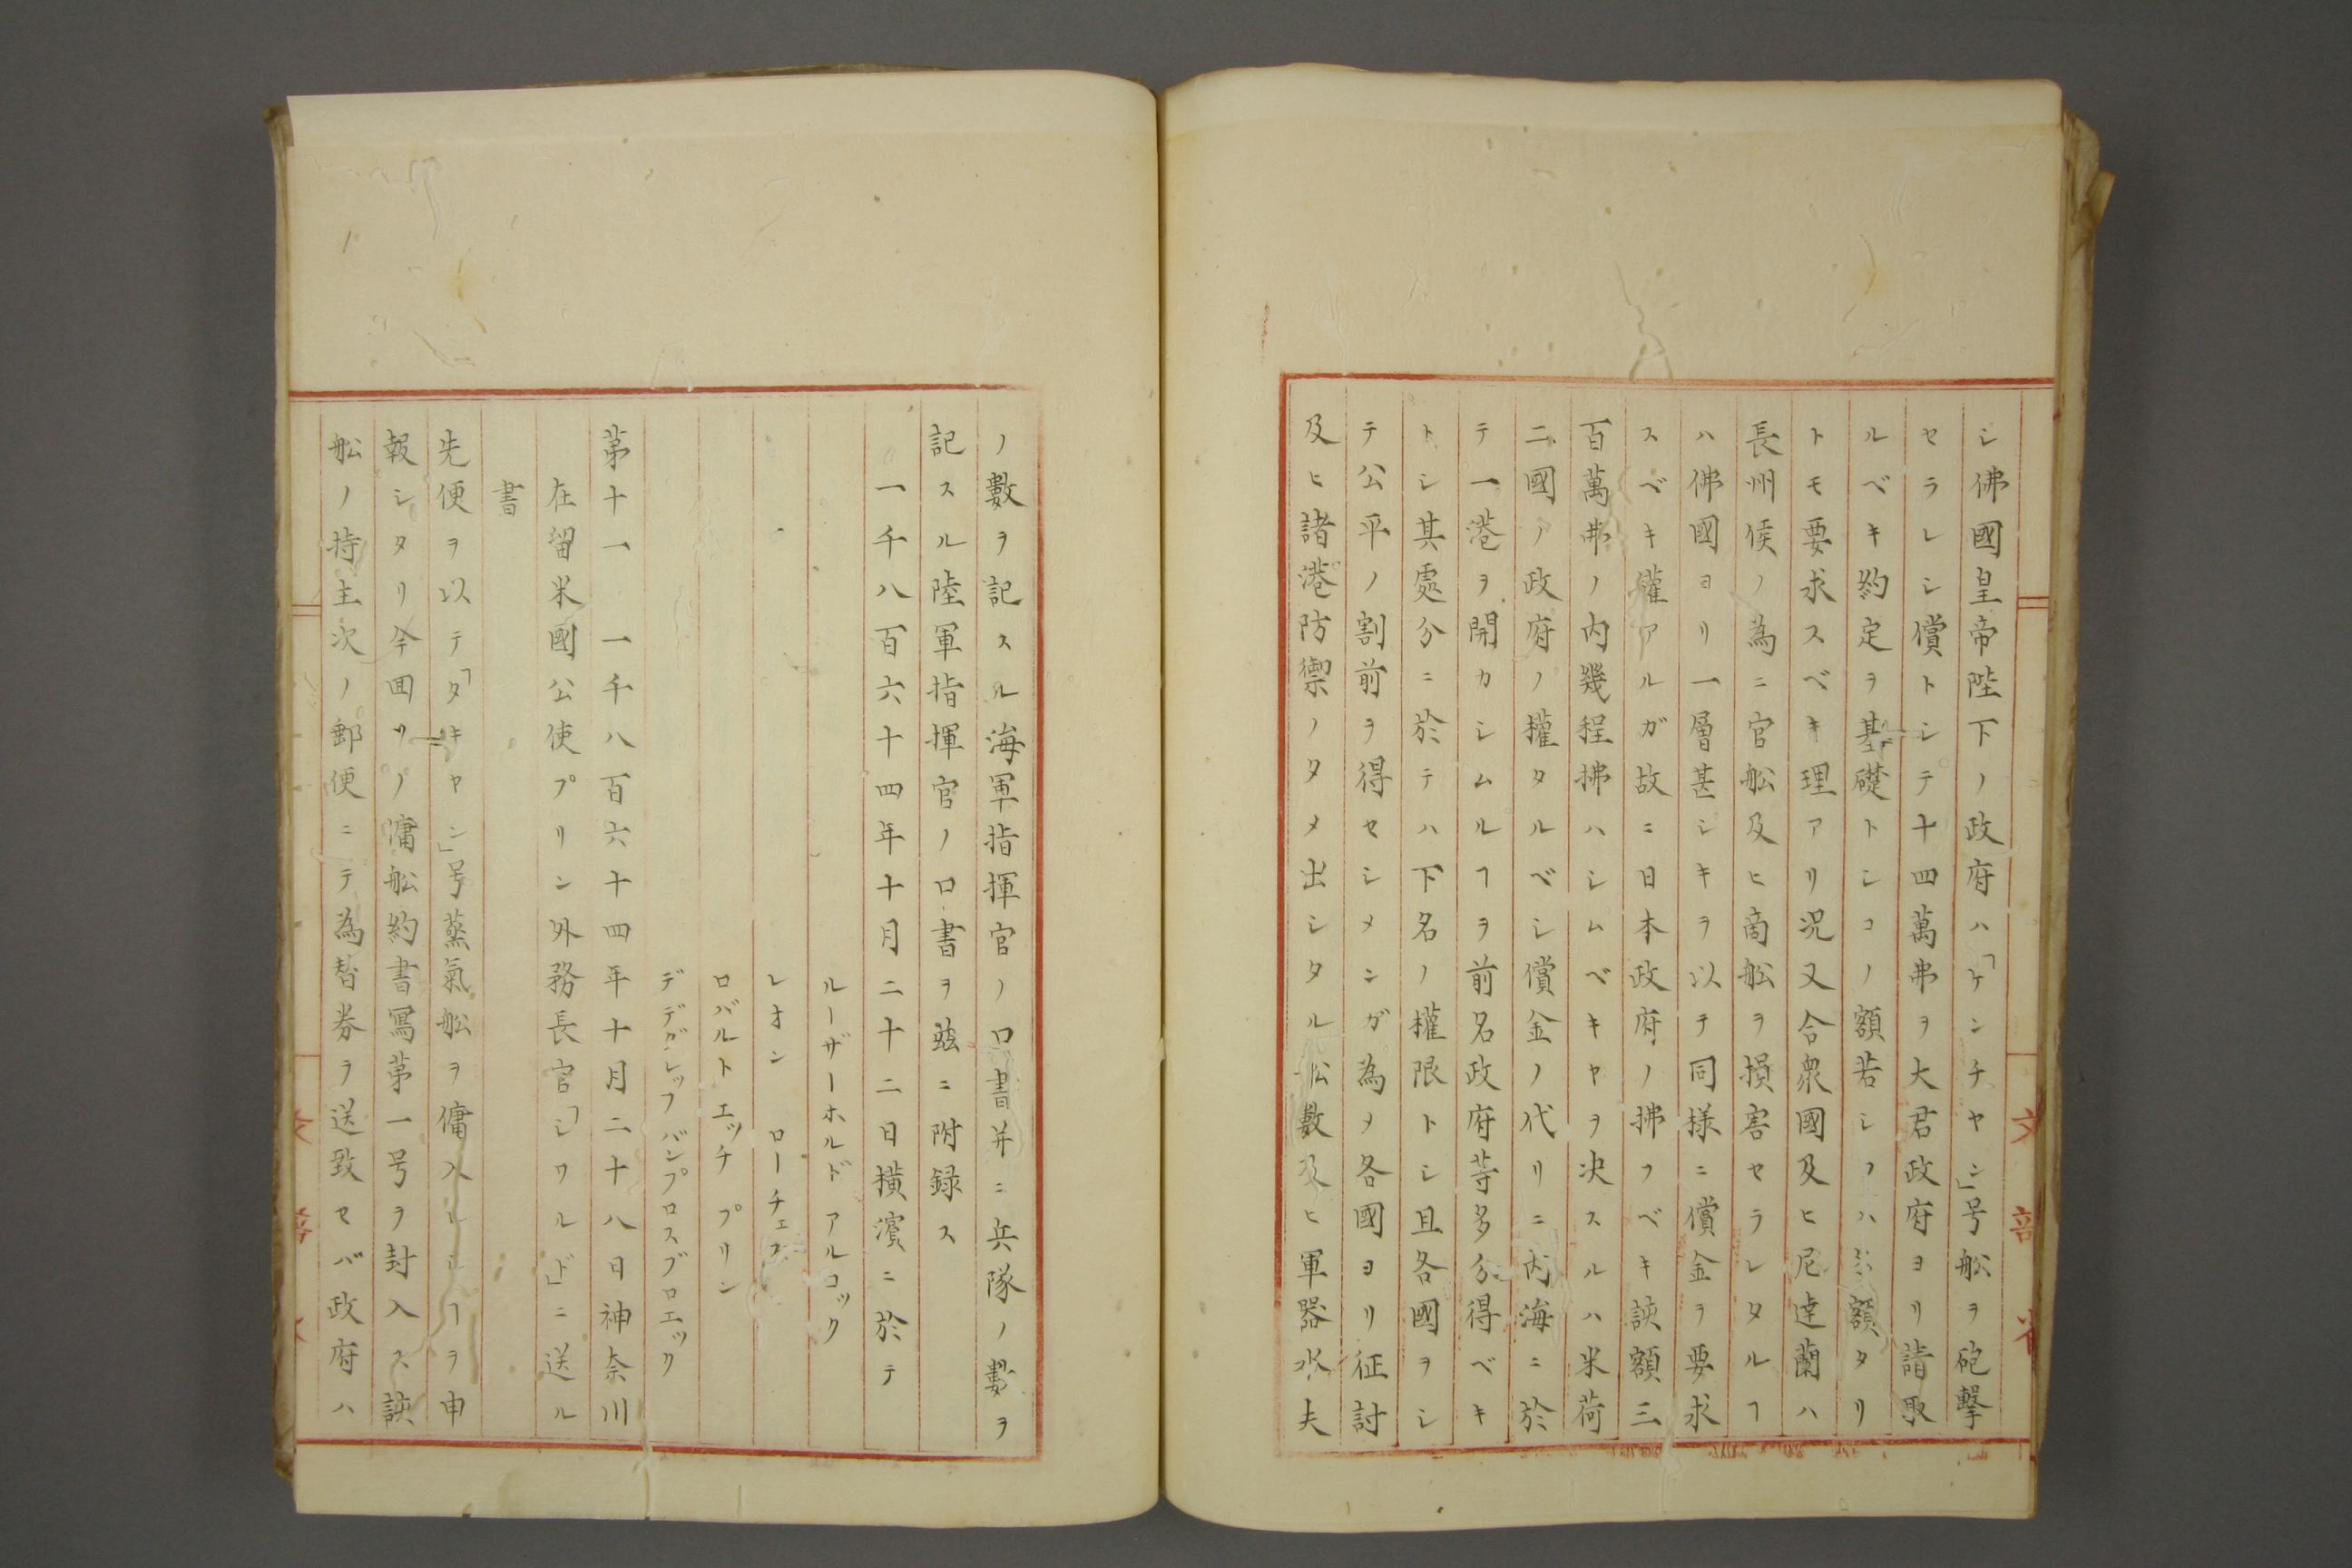 シ佛國皇帝陛下ノ政府ハ「ケンチヤン」号舩ヲ砲撃
セラレシ償トシテ十四萬弗ヲ大君政府ヨリ請取
ルベキ約定ヲ基礎トシコノ額若シフハ額タリ
トモ要求スベキ理アリ況又合衆國及ヒ尼達蘭ハ
長州侯ノ為ニ官舩及ヒ商舩ヲ損害セラレタルヿ
ハ佛國ヨリ一層甚シキヲ以テ同様ニ償金ヲ要求
スベキ權アルガ故ニ日本政府ノ拂フベキ該額三
百萬弗ノ内幾程拂ハシムベキヤヲ决スルハ米荷
二國ノ政府ノ權タルベシ償金ノ代リニ内海ニ於
テ一港ヲ開カシムルヿヲ前名政府等多分得ベキ
トシ其處分ニ於テハ下名ノ權限トシ且各國ヲシ
テ公平ノ割前ヲ得セシメンガ為メ各國ヨリ征討
及ヒ諸港防禦ノタメ出シタル舩數及ヒ軍器水夫
文部省
ノ數ヲ記スル海軍指揮官ノ口書并ニ兵隊ノ數ヲ
記スル陸軍指揮官ノ口書ヲ玆ニ附録ス
一千八百六十四年十月二十二日横濱ニ於テ
ルーザーホルド アルコック
レオン ローチェス
ロバルト エッチ プリン
デデグレッフバンプロスブロエック
第十一 一千八百六十四年十月二十八日神奈川
在留米國公使プリン外務長官「シワルド」ニ送ル
書
先便ヲ以テ「タキヤン」号蒸氣舩ヲ傭入レシヿヲ申
報シタリ今回ソノ傭舩約書寫第一号ヲ封入ス該
舩ノ持主次ノ郵便ニテ為替券ヲ送致セバ政府ハ